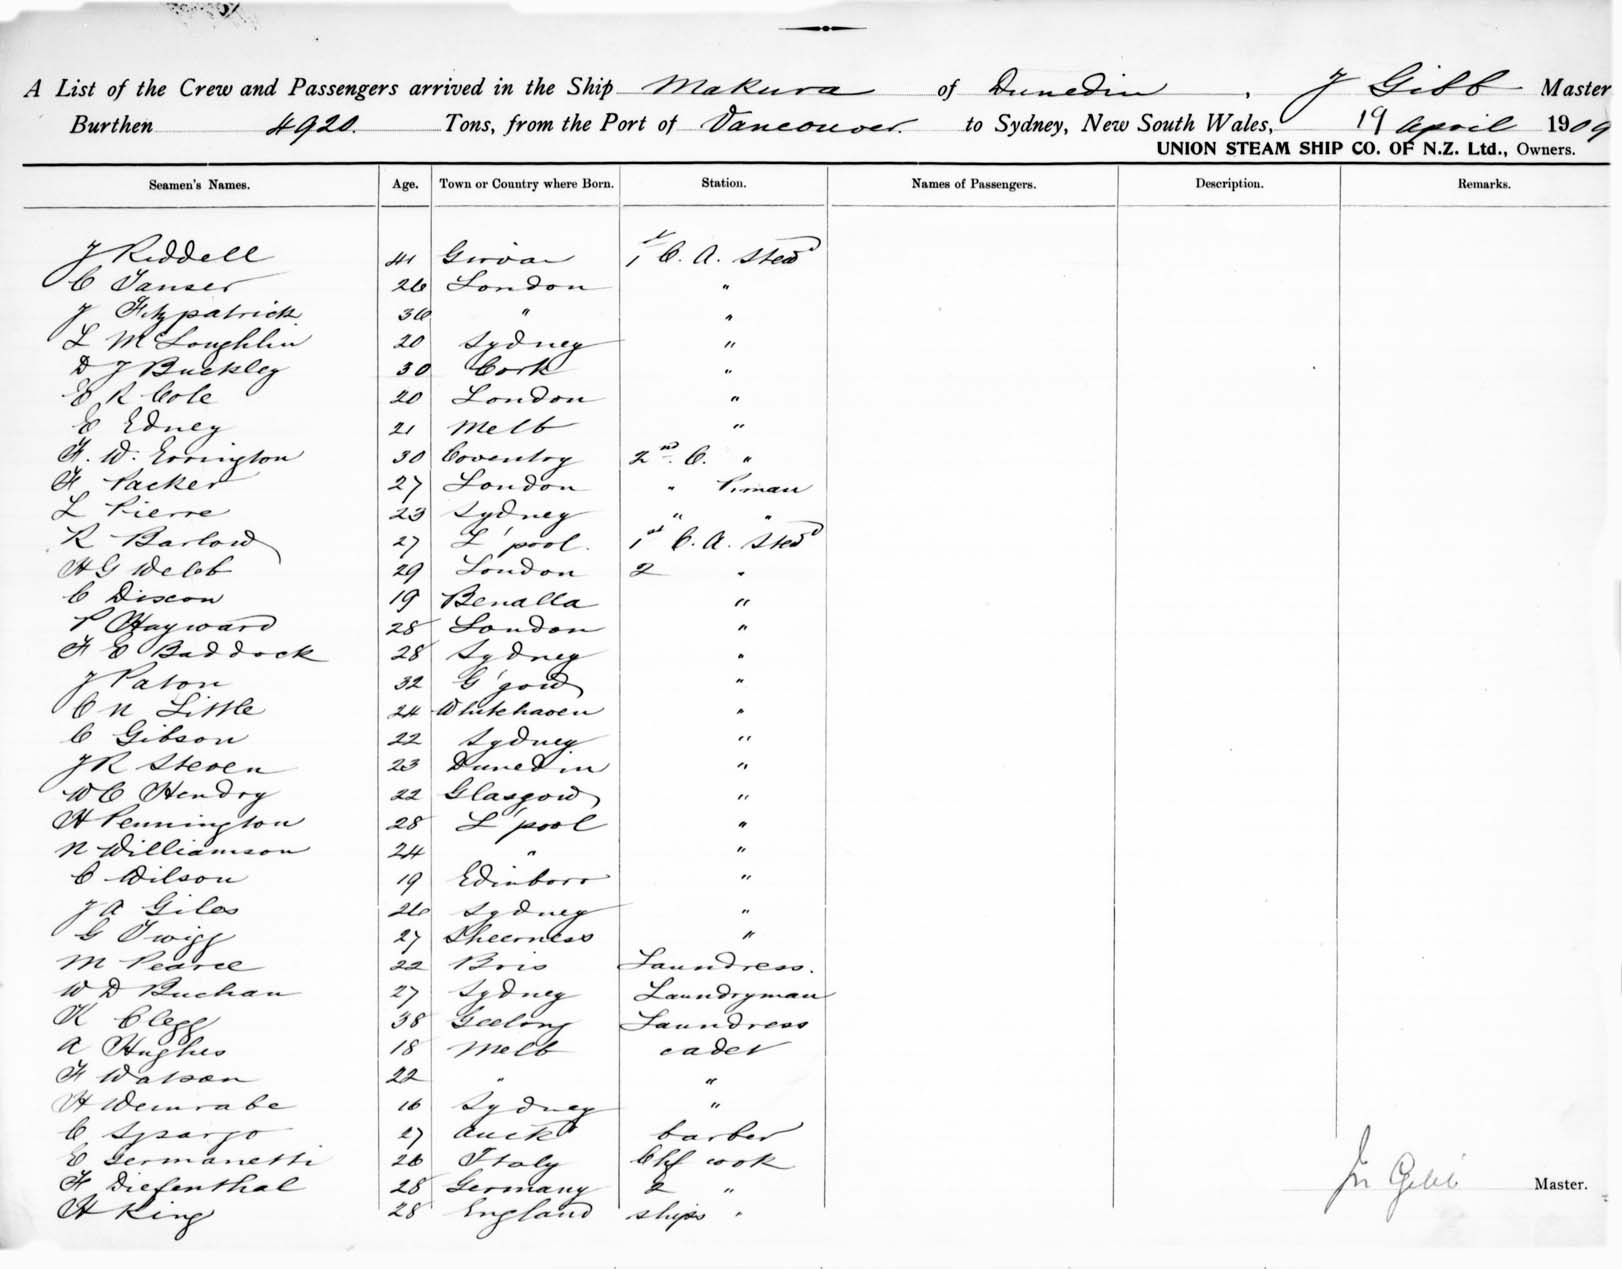 A List of the Crew and Passengers arrived in the Ship Makura of Dunedin, J Gibb Master
Burthen 4920. Tons, from the Port of Vancouver. to Sydney, New South Wales, 19 April 1909
UNION STEAM SHIP CO. OF N.Z. Ltd., Owners.
Seamen's Names. Age. Town or Country where Born. Station. Names of Passengers. Description. Remarks.
J Riddell 41 Girvan 1st C. A. Stewd
C Tanser 26 London "
J Fitzpatrick 36 " "
L McLoughlin 20 Sydney "
D J Buckley 30 Cork "
E R Cole 20 London "
E Edney 21 Melb "
F. W. Errington 30 Coventry 2nd. C. "
F Packer 27 London " P.man
L Pierre 23 Sydney " "
R Barlow 27 L'pool. 1st C. A. Stewd
H G Webb 29 London 2 "
C Dixon 19 Benalla "
P Hayward 28 London "
F E Baddock 28 Sydney "
J Paton 32 G'gow "
C N Little 24 Whitehaven "
C Gibson 22 Sydney "
J R Steven 23 Dunedin "
W C Hendry 22 Glasgow "
H Pennington 28 L'pool "
N Williamson 24 " "
C Wilson 19 Edinboro "
J A Giles 26 Sydney "
G Twigg 27 Sheerness "
M Pearce 22 Bris Laundress.
W D Buchan 27 Sydney Laundryman
K Clegg 38 Geelong Laundress
A Hughes 18 Melb cadet
F Watson 22 " "
H Wemrabe 16 Sydney "
C Spargo 27 Auckd barber
E Germanetti 26 Italy Chf cook
F Diefenthal 28 Germany 2 "
H King 28 England ships "
Jn Gibb Master.